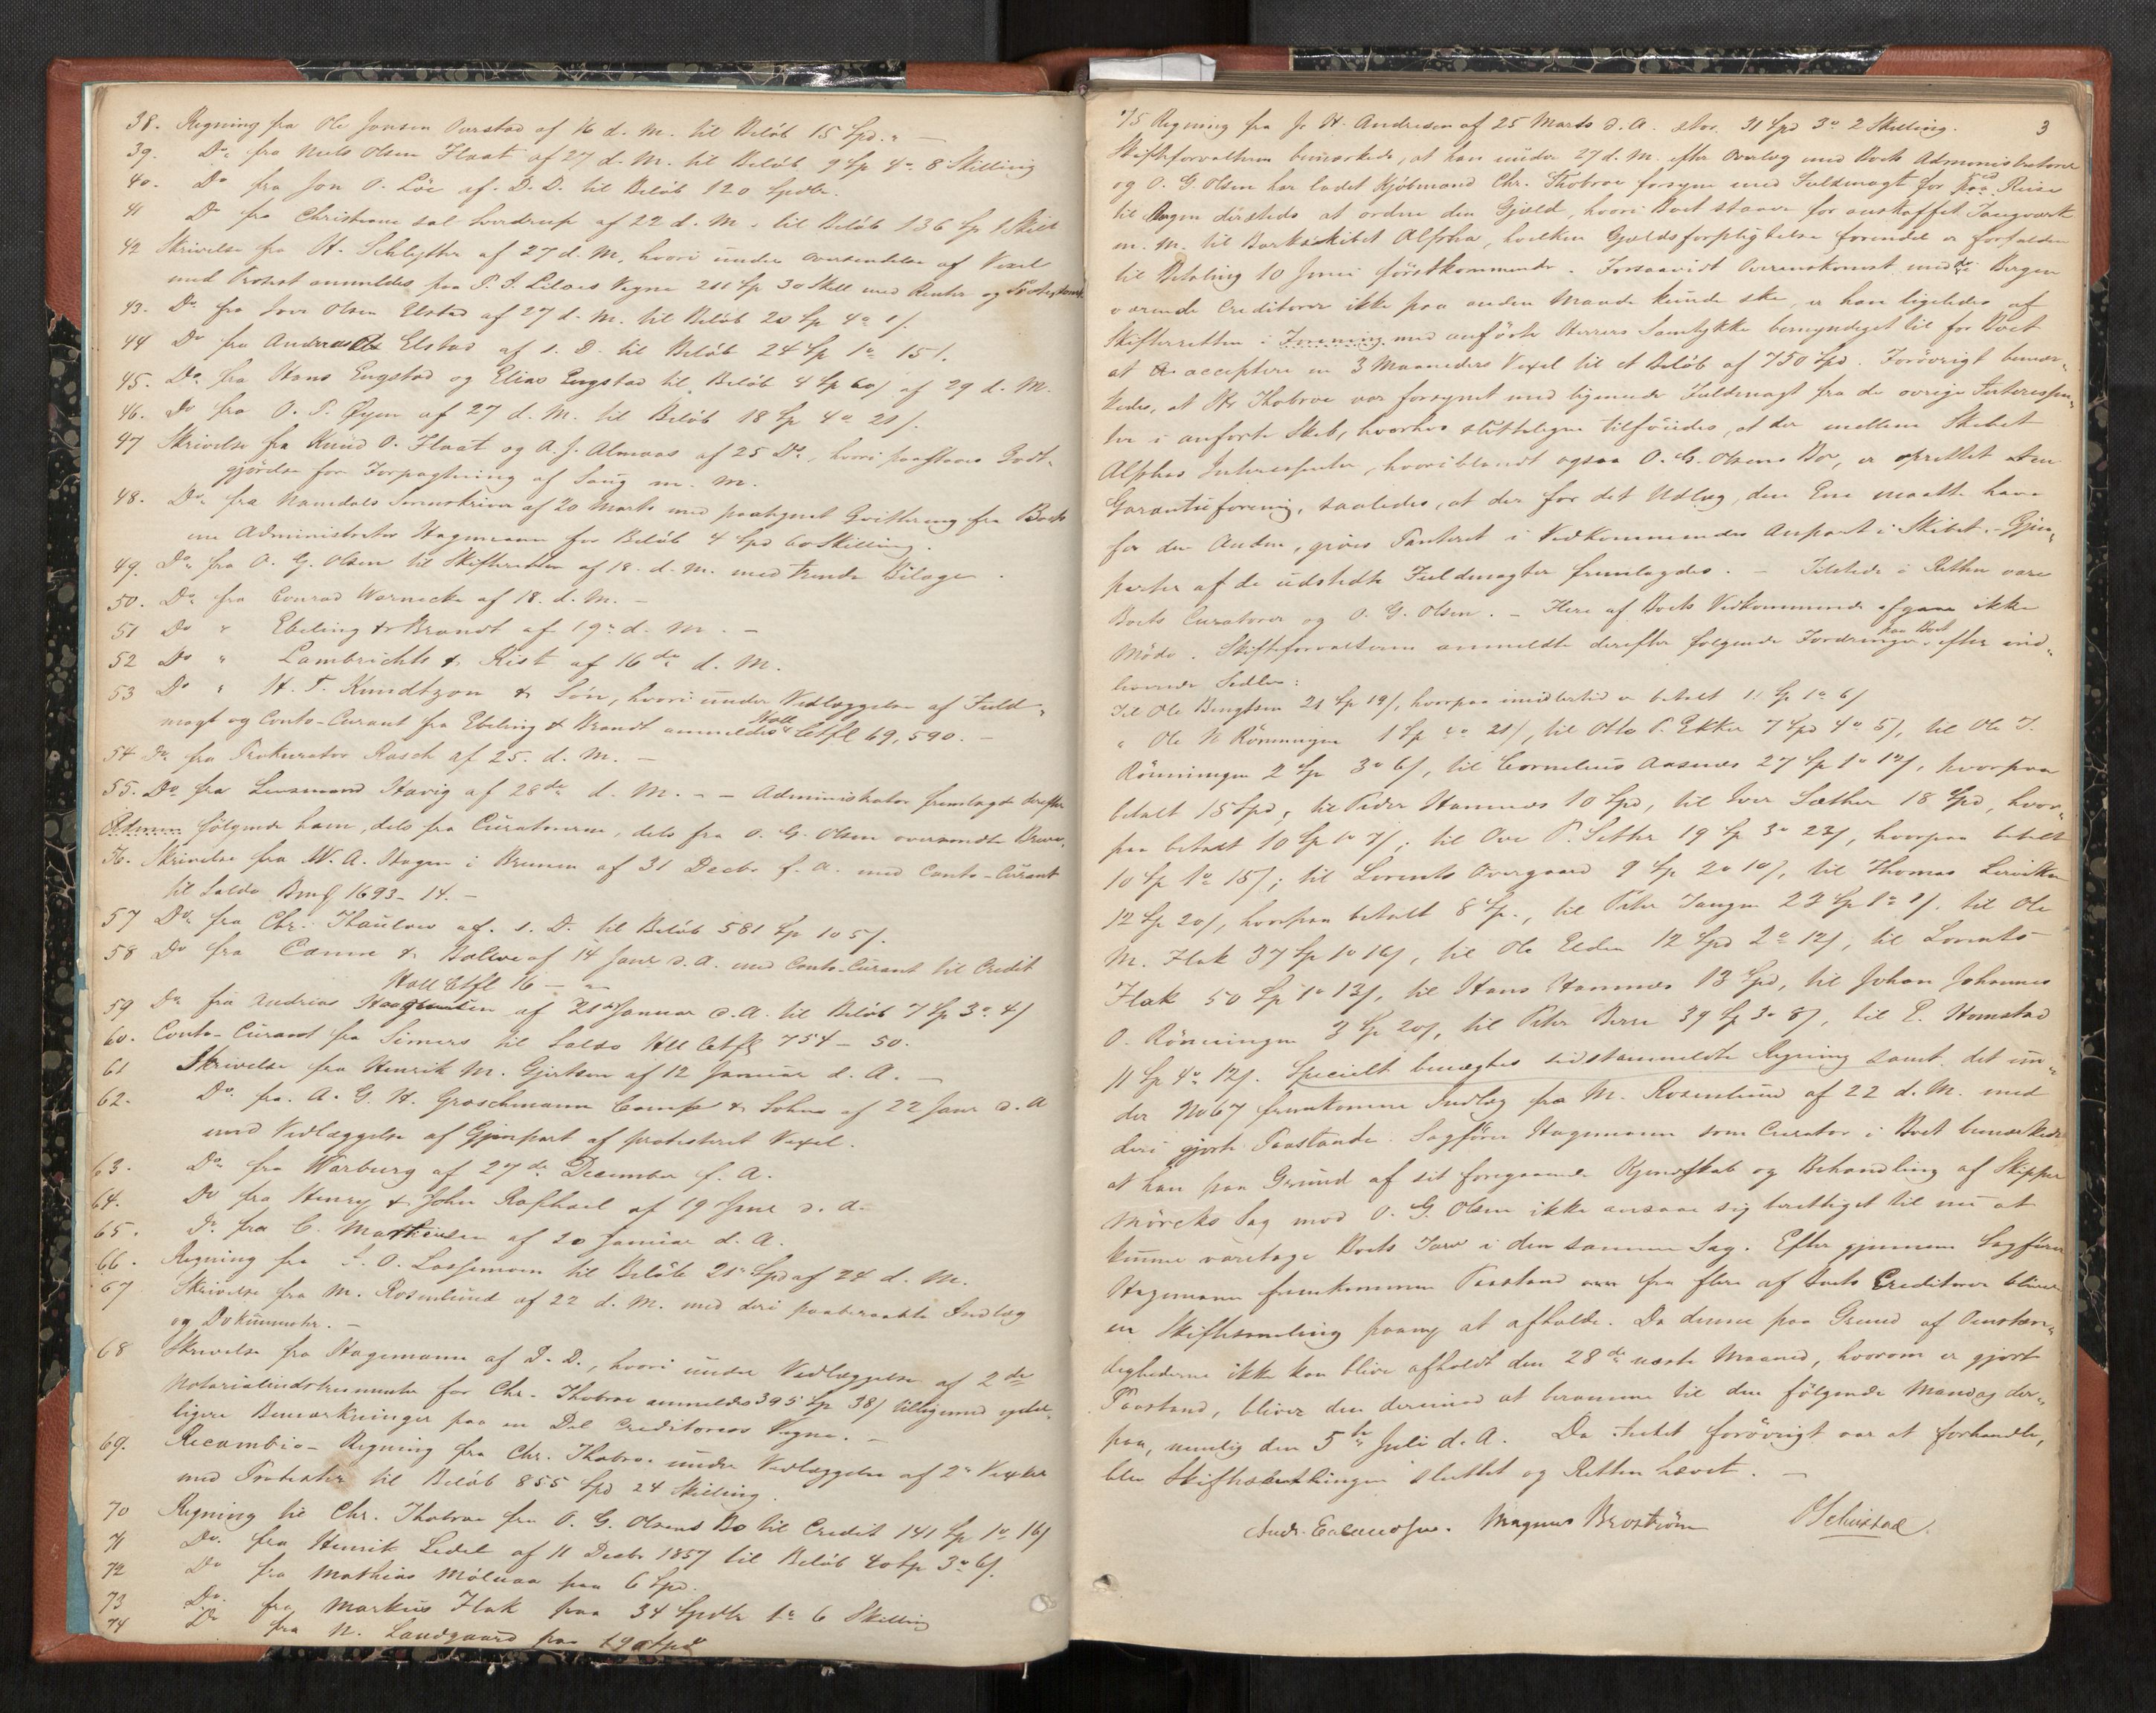 38. Regning fra Ole Jonsen Overstad af 16 d. M. til Beløb 15 Spd. " —
39. Do fra Niels Olsen Flaat af 27 d. M. til Beløb 9 Sp 4 o. 8 Skilling
40. Do fra Jon O. Löe af D. D. til Beløb 120 Spdlr.
41 Do fra Christiane sal Sverdrup af 22 d. M. til Beløb 136 Sp 1 Skill
42 Skrivelse fra H. Schlytter af 27 d. M. hvori under Oversendelse af Vexel
med Protest anmeldes paa P. I. Liloes Vegne 211 Sp 30 Skill med Renter og
43. Do fra Iver Olsen Elstad af 27 d. M. til Beløb 20 Sp 4 o 1/.
44 Do fra Andreas Elstad af s. D. til Beløb 24 Sp 1 o 15/.
45. Do fra Hans Engstad og Elias Engstad til Beløb 4 Sp 60/ af 29 d. M.
46. Do fra O. T. Øyen af 27 d. M. til Beløb 18 Sp 4 o 21/.
47 Skrivelse fra Knud O. Flaat og A. J. Almaas af 25 Do, hvori paastaaes Godt-
gjørelse for Forpagtning af Saug m. m.
48. Do fra Namdals Sorenskriver af 20 Marts med paategnet Qvittering fra Boets
ene Administrator Hagemann for Beløb 4 Spd 60 Skilling.
49. Do fra O. G. Olsen til Skifteretten af 18. d. M. med trende Bilage.
50. Do fra Conrad Warnecke af 18. d. M. —
51 Do " Ebeling & Brandt af 19 d. M. —
52 Do " Lambrichts & Kist af 16de d. M.
53 Do " H. T. Knudtzon & Søn, hvori under Vedlæggelse af Fuld-
magt og Conto-Curant fra Ebeling & Brandt anmeldes Holl Ctfl 69,590. —
54 Do fra Prokurator Rasch af 25. d. M. —
55. Do fra Lensmand Havig af 28de d. M. — Administrator fremlagde derefter
følgende ham, dels fra Curatorerne, dels fra O. G. Olsen oversendte Breve.
56. Skrivelse fra W. A. Hagen i Bremen af 31 Decbr f. A. med Conto-Curant
til Saldo Bmk 1693-14. —
57 Do fra Chr. Thaulow af s. D. til Beløb 581 Sp 1 o 5/.
58 Do fra Canne & Balwe af 14 Janr d. A. med Conto-Curant til Credit
Holl Ctfl 16 —
59 Do fra Andreas Haagensen af 21 Januar d. A. til Beløb 7 Sp 3 o 4/
60. Conto-Curant fra Simers til Saldo Hll Ctfl 754 - 50.
61 Skrivelse fra Henrik M. Gjertsen af 12 Januar d. A. —
62. Do. fra A. G. H. Groschmann Comp & Sohne af 22 Janr d. A
med Vedlæggelse af Gjenpart af protesteret Vexel.
63. Do fra Warburg af 27de December f. A.
64. Do fra Henry & John Raphael af 19 Janr d. A.
65. Do fra C. Mathiesen af 20 Januar d. A.
66. Regning fra O. Lossemoen til Beløb 21 Spd af 24 d. M.
67 Skrivelse fra M. Rosenlund af 22 d. M. med deri paaberaabte Indlæg
og Dokumenter. —
68 Skrivelse fra Hagemann af D. D., hvori under Vedlæggelse af 2de
Notarialindstrumenter for Chr. Thobroe anmeldes 395 Sp 38/ tilligemed yder-
ligere Bemærkninger paa en Del Creditorers Vegne. —
69. Recambio-Regning fra Chr. Thobroe under Vedlæggelse af 2 Vexler
med Protester til Beløb 855 Spd 24 Skilling.
70 Regning til Chr. Thobroe fra O. G. Olsens Bo til Credit 141 Sp 1 o 16/
71 Do. fra Henrik Sedel af 11 Decbr 1857 til Beløb 40 Sp 3 o 6/.
72 Do fra Mathias Mölnaa paa 6 Spd.
73 Do. fra Markus Flak paa 34 Spdlr 1 o 6 Skilling
74 Do fra N. Landgaard paa 190 Spd
3
75 Regning fra J. H. Andresen af 25 Marts d. A. stor 31 Spd 3 o 2 Skilling.
Skifteforvalteren bemærkede, at han under 27 d. M. efter Overlæg med Boets Administratorer
og O. G. Olsen har ladet Kjøbmand Chr. Thobroe forsyne med Fuldmagt for ved Reise
til Bergen dersteds at ordne den Gjæld, hvori Boet staaer for anskaffet Taugværk
m. M. til Barkskibet Alpha, hvilken Gjældsforpligtelse forendel er forfalden
til Betaling 10 Juni førstkommende. Forsaavidt Overenskomst med de i Bergen
værende Creditorer ikke paa anden Maade kunde ske, er han ligeledes af
Skifteretten i Forening med anførte Herrers Samtykke bemyndiget til for Boet
at acceptere en 3 Maaneders Vexel til et Beløb af 750 Spd. Forøvrigt bemær-
kedes, at Hr Thobroe var forsynet med lignende Fuldmagt fra de øvrige Interessen-
ter i anførte Skib, hvorhos slutteligen tilføiedes, at der mellem Skibet
Alphas Interessenter, hvoriblandt ogsaa O. G. Olsens Bo, er oprettet en
Garantieforening, saaledes, at der for det Udlæg, den Ene maatte have
for den Anden, gives Panteret i Vedkommendes Anpart i Skibet. - Gjen-
parter af de udstedte Fuldmagter fremlagdes. — Tilstede i Retten vare
Boets Curatorer og O. G. Olsen. — Flere af Boets Vedkommende afgave ikke
Møde. Skifteforvalteren anmeldte derefter følgende Fordringer paa Boet efter ind-
havende Sedler:
Til Ole Bengtsen 21 Sp 19/, hvorpaa imidlertid er betalt 11 Sp 1 o 6/
" Ole N Rönningen 1 Sp 4 o 21/, til Otto P. Ekker 7 Spd 4 o 5/, til Ole I.
Rönningen 2 Sp 3 o 6/, til Cornelius Aasnes 27 Sp 1 o 17/, hvorpaa
betalt 15 Spd, til Peder Hamnes 10 Spd, til Iver Sæther 18 Spd, hvor-
paa betalt 10 Sp 1 o 7/; til Ove P. Sæther 19 Sp 3 o 23/, hvorpaa betalt
10 Sp 1 o 15/; til Lorents Overgaard 9 Sp 2 o 10/, til Thomas Lervikken
12 Sp 20/, hvorpaa betalt 8 Sp., til Peter Tangen 23 Sp 1 o 1/. til Ole
M. Flak 37 Sp 1 o 16/, til Ole Elden 12 Spd 2 o 12/, til Lorents
Flak 50 Sp 1 o 13/, til Hans Hamnes 13 Spd, til Johan Johannes
O. Rönningen 3 Sp 20/, til Peter Berre 39 Sp 3 o 8/, til P. Homstad
11 Sp 4 o 12/. Specielt benegtes sidstanmeldte Regning samt det un-
der No 67 fremkomne Indlæg fra M. Rosenlund af 22 d. M. med
deri gjorte Paastande. Sagfører Hagemann som Curator i Boet bemærkede
at han paa Grund af sit foregaaende Kjendskab og Behandling af Skipper
Mörcks Sag mod O. G. Olsen ikke ansaae sig berettiget til nu at
kunne varetage Boets Tarv i den samme Sag. Efter gjennem Sagfører
Hagemann fremkommen Paastand fra flere af Boets Creditorer bliver
en Skiftesamling paany at afholde. Da denne paa Grund af Omstæn-
dighederne ikke kan blive afholdt den 28de næste Maaned, hvorom er gjort
Paastand, bliver den derimod at beramme til den følgende Mandag der-
paa, nemlig den 5te Juli d. A. Da Intet forøvrigt var at forhandle,
blev Skiftesamlingen sluttet og Retten hævet. —
Magnus Broström